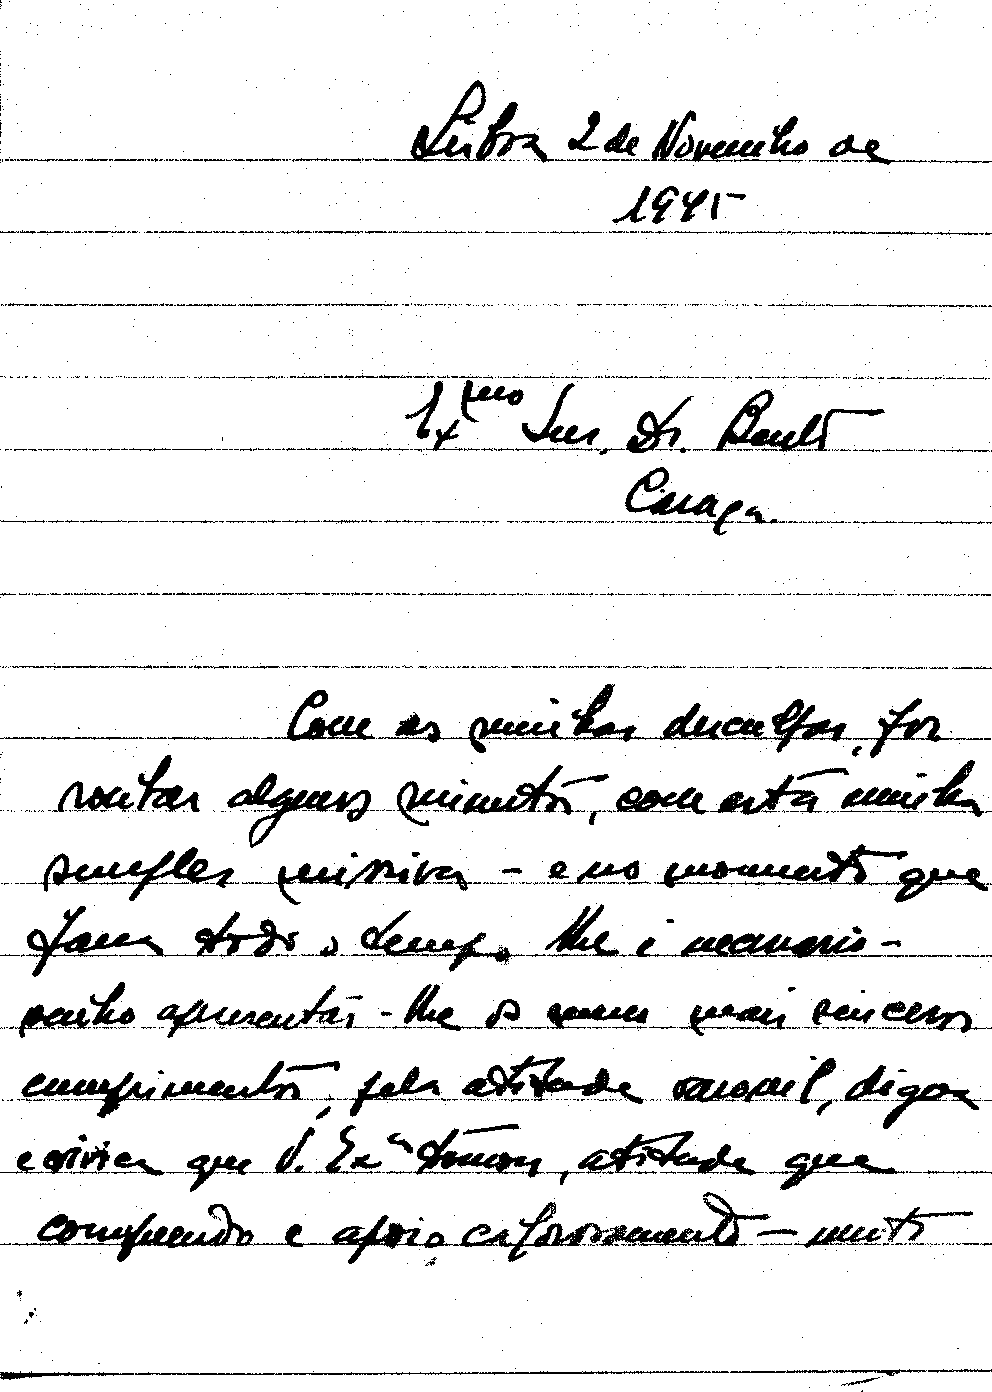 Lisboa 2 de Novembro de
1945
Exmo Snr. Dr. Bento
Caraça.
Com as minhas desculpas, por
roubar alguns minutos, com esta minha
simples missiva - e no momento que
para todo o tempo lhe é necessário -
venho apresentar-lhe os meus mais sinceros
cumprimentos, pela atitude varonil, digna
e civica que V. Exª tomou, atitude que
compreendo e apoio calorosamente - muito